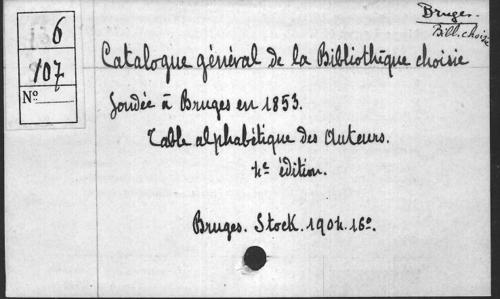 Bruges.
Bibl. choisie
6
107
No
Catalogue général de la Bibliothèque choisie
fondée à Bruges en 1853.
Table alphabétique des Auteurs.
4e édition.
Bruges. Stock. 1904. 16o.